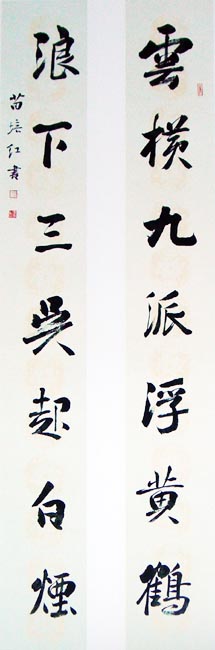 雲橫九派浮黄鶴
浪下三吳起白煙
苗培红書